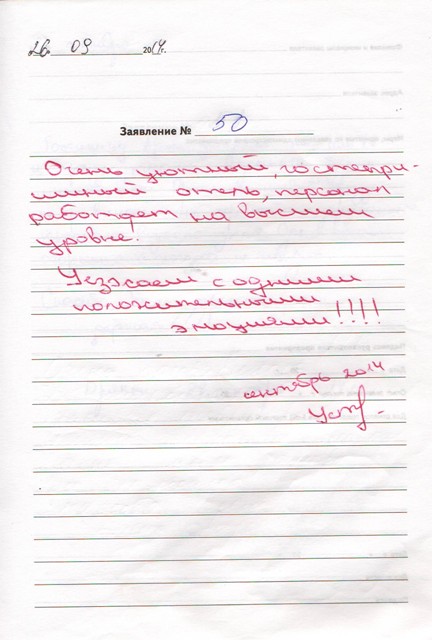 26. 09 2014г.
Заявление № 50
Очень уютный, гостепри-
имный отель, персонал
работает на высшем
уровне.
Уезжаем с одними
положительными
эмоциями!!!!
сентябрь 2014